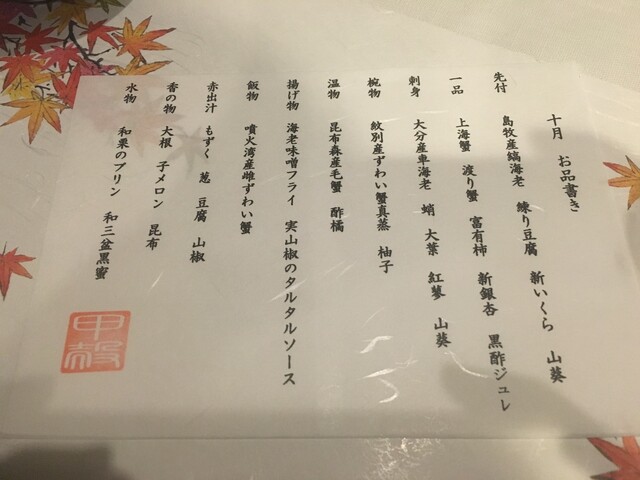 十月 お品書き
先付 島牧産縞海老 練り豆腐 新いくら 山葵
一品 上海蟹 渡り蟹 富有柿 新銀杏 黒酢ジュレ
刺身 大分産車海老 蛸 大葉 紅蓼 山葵
椀物 紋別産ずわい蟹真蒸 柚子
温物 昆布森産毛蟹 酢橘
揚げ物 海老味噌フライ 実山椒のタルタルソース
飯物 噴火湾産雌ずわい蟹
赤出汁 もずく 葱 豆腐 山椒
香の物 大根 子メロン 昆布
水物 和栗のプリン 和三盆黒蜜
甲殻